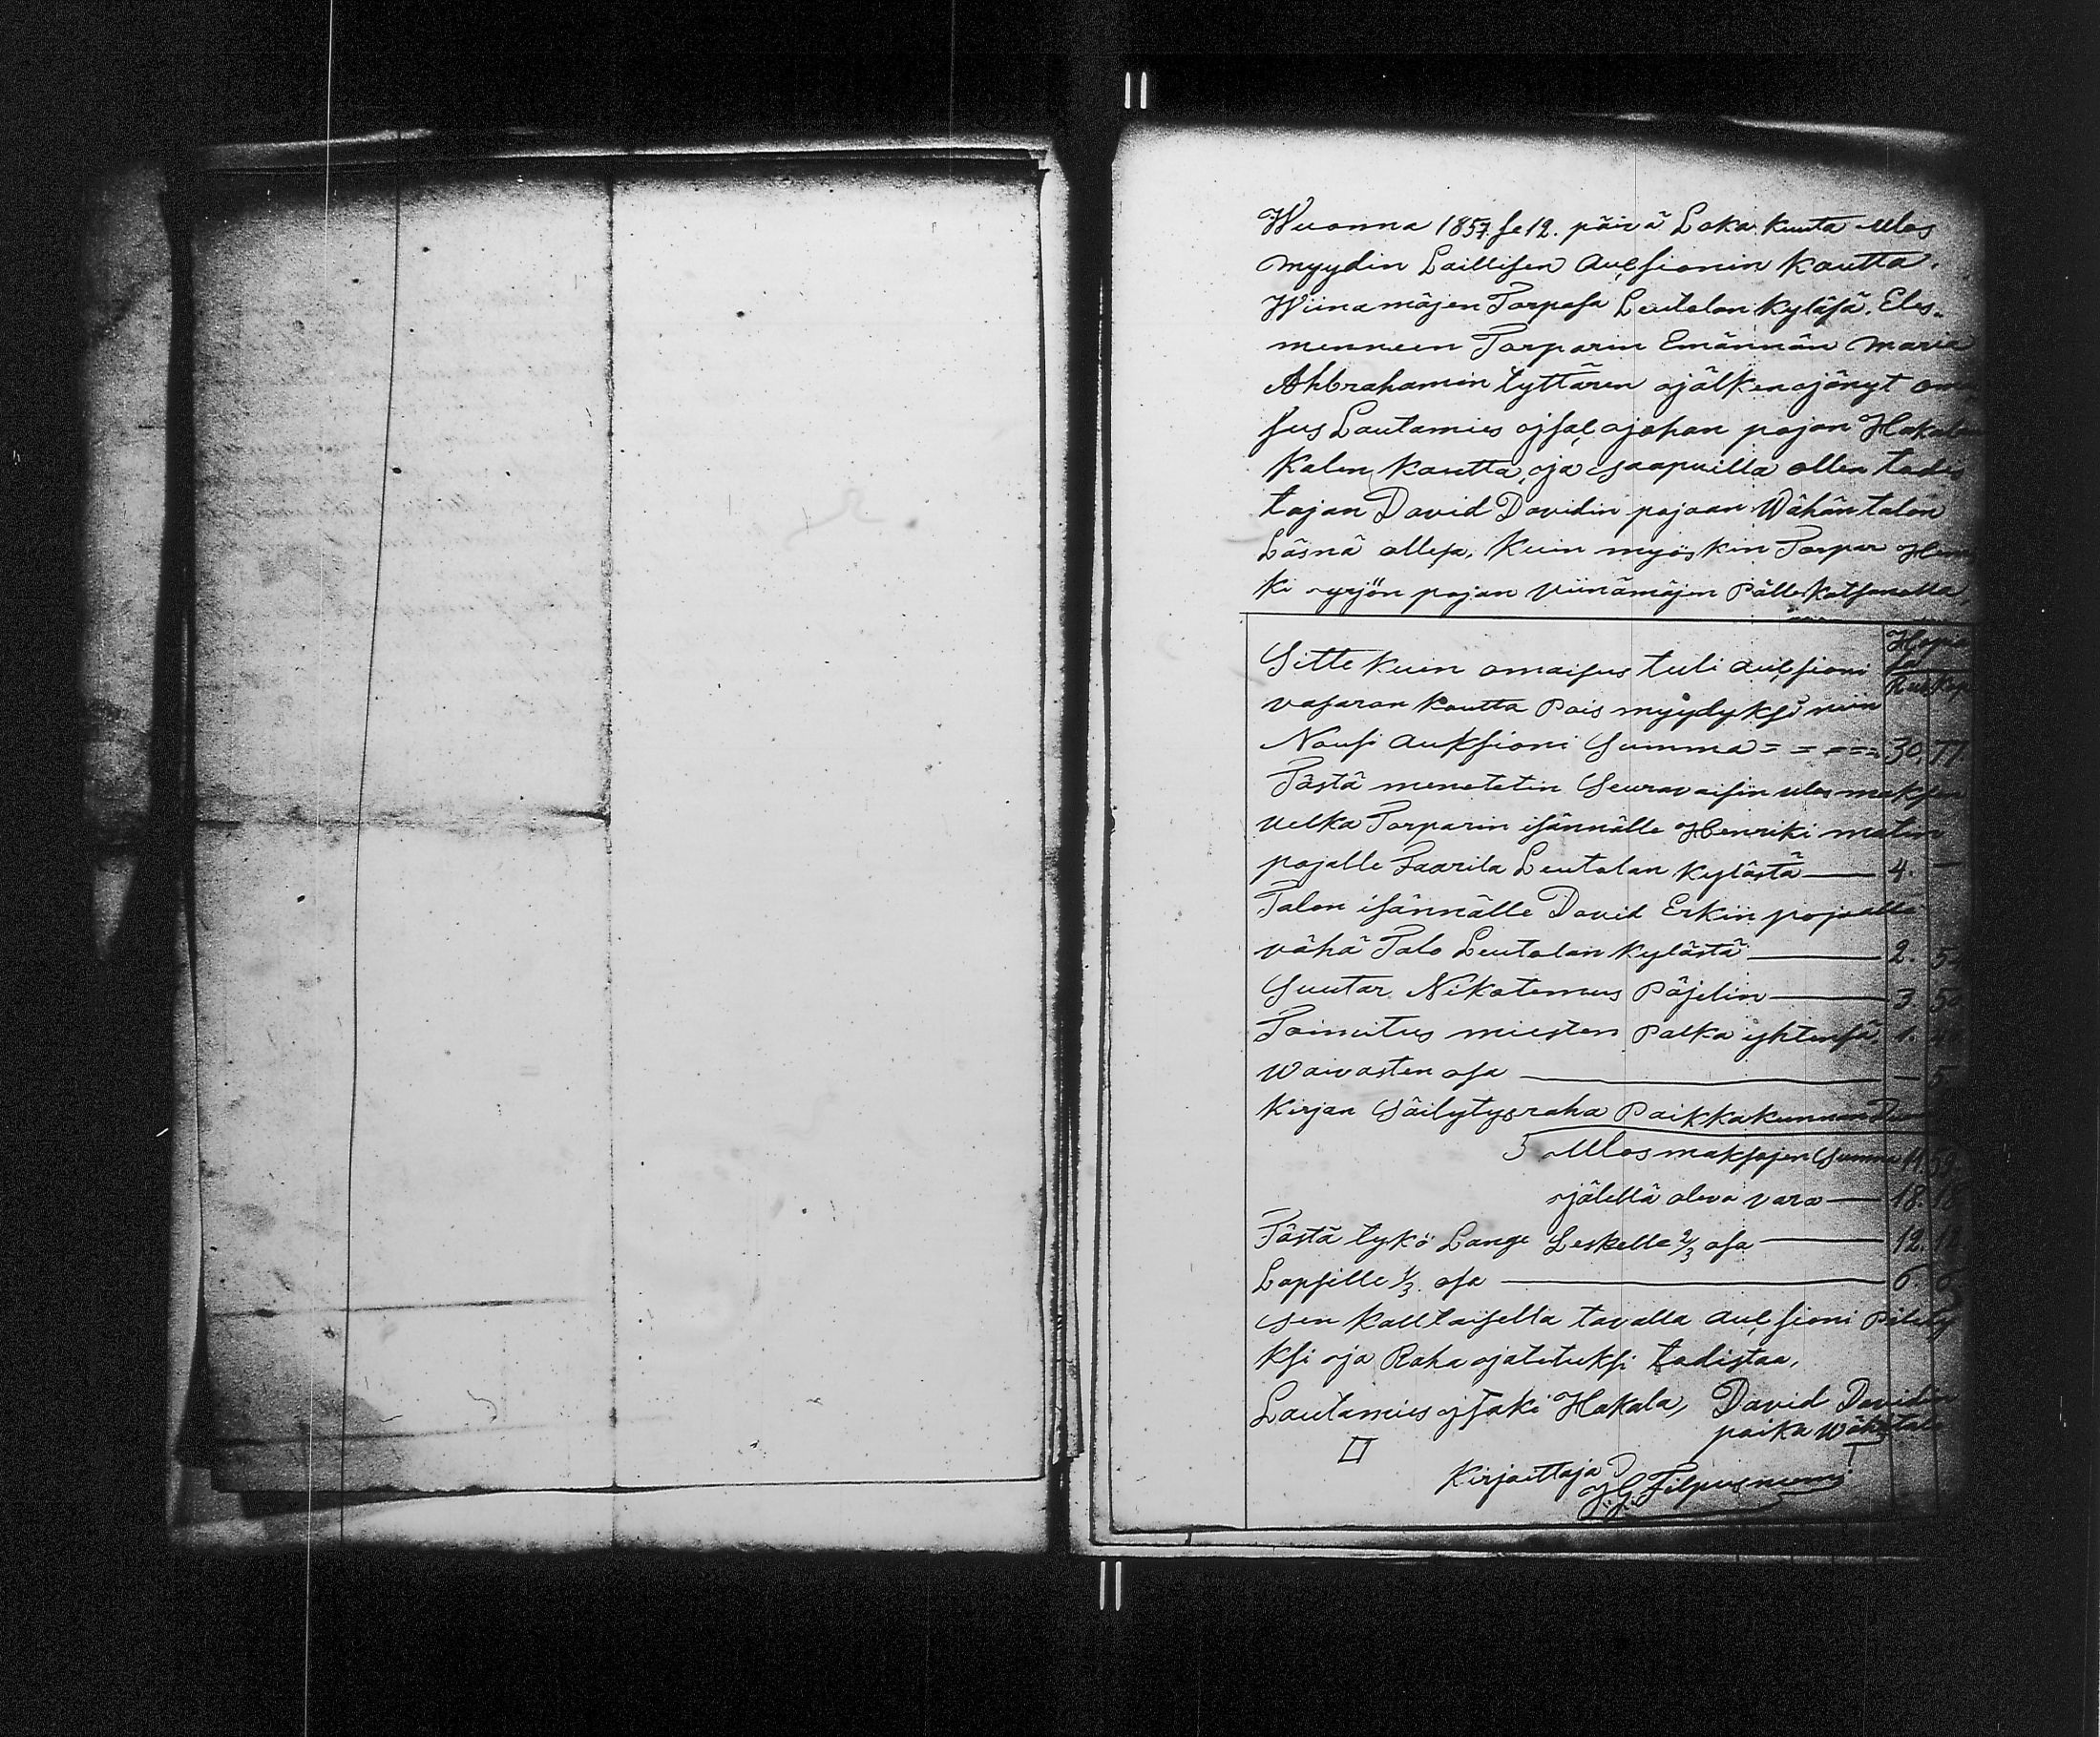 Wuonna 1857 se 12. päivä Loka kuuta Ulos
myydin Laillisen Auksionin kautta.
Wiinamäjen Torpasa Leutolan kyläsä. Eles-
menneen Torparin Emännän Maria
Ahbrahamin tyttären jälken jänyt oma
sus Lautamies Isac Johan pojan Hakalan
Kalen kautta, ja saapuilla ollen todis
tajan David Davidin pojaan Wähäntalon
Läsnä ollesa, kuin myöskin Torpar Hen
ki yrjön pojan Viinämäjen Pällekatsonolla,
Hopia
sa
Rub Kop
Sitte kuin omaisus tuli auksioni
vasaran kautta Pois myydyksi niin
Nousi Auksioni Summa = = = = = 30. 77.
Tästä menetetin Seuravaisin ulos maksun
velka Torparin isännälle Henriki matin
pojalle Faarila Leutolan kylästä — 4. —
Talon isännälle David Erkiin pojalle
vähä Talo Leutolan kylästä — 2. 5
Suutar Nikotemus Päjelin — 3 50
Toimitus miesten Palka yhtensä 1.
Waivasten osa — — 5
Kirjan Säilytysraha Paikkakunnan
Ulos maksojen Summa 11 59
jälellä oleva vara — 18. 18
Tästä tykö Lange Leskelle 2/3 osa — 12. 12
Lapsille 1/3 osa — 6. 6
sen kalltaisella tavalla auksioni Pidety
ksi ja Raha jaletuksi todistaa,
Lautamies Isaki Hakala, David Davidin
poika Wähätalo
Kirjoittaja
J. G. Filpusniemi